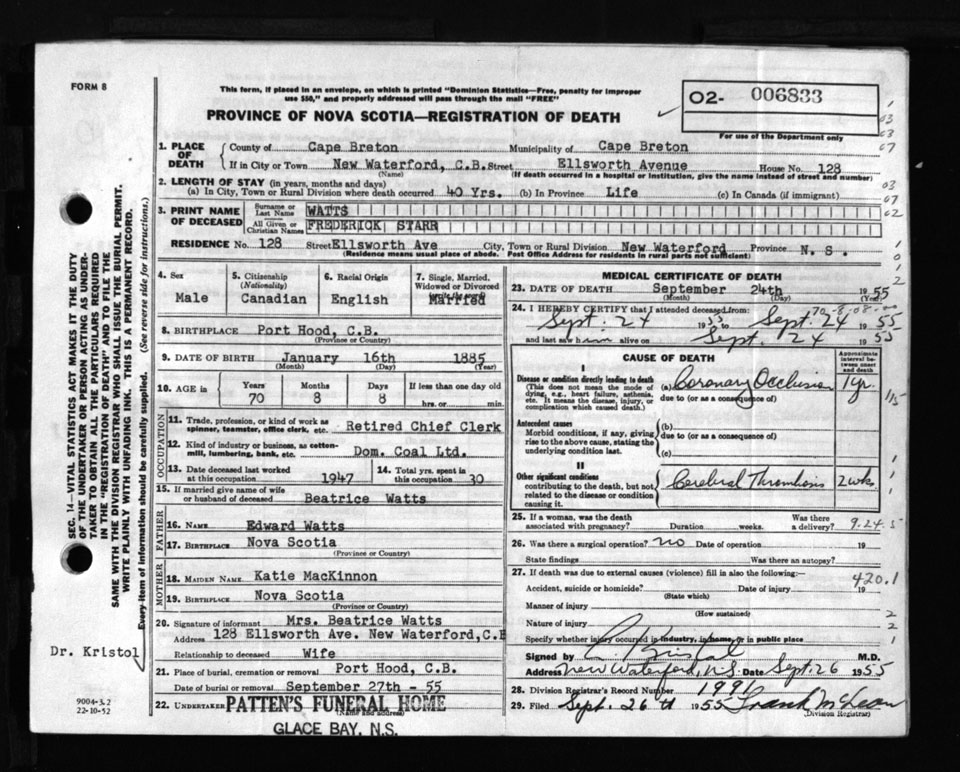 FORM 8
This form, if placed in an envelope, on which is printed "Dominion Statistics—Free, penalty for improper
use $50," and properly addressed will pass through the mail "FREE"
PROVINCE OF NOVA SCOTIA—REGISTRATION OF DEATH
O2- 006833
For use of the Department only
1. PLACE OF DEATH
County of Cape Breton Municipality of Cape Breton
If in City or Town New Waterford, C.B. Street Ellsworth Avenue House No. 128
(Name) (If death occurred in a hospital or institution, give the name instead of street and number)
2. LENGTH OF STAY (in years, months and days)
(a) In City, Town or Rural Division where death occurred 40 Yrs. (b) In Province Life (c) In Canada (if immigrant)
3. PRINT NAME OF DECEASED
Surname or Last Name WATTS
All Given or Christian Names FREDERICK STARR
RESIDENCE No. 128 Street Ellsworth Ave City, Town or Rural Division New Waterford Province N. S.
(Residence means usual place of abode. Post Office Address for residents in rural parts not sufficient)
4. Sex
Male
5. Citizenship (Nationality)
Canadian
6. Racial Origin
English
7. Single, Married, Widowed or Divorced
Married
8. BIRTHPLACE Port Hood, C.B.
(Province or Country)
9. DATE OF BIRTH January 16th 1885
(Month) (Day) (Year)
10. AGE in Years Months Days If less than one day old
70 8 8 hrs. or min.
OCCUPATION
11. Trade, profession, or kind of work as
spinner, teamster, office clerk, etc. Retired Chief Clerk
12. Kind of industry or business, as cotten-
mill, lumbering, bank, etc. Dom. Coal Ltd.
13. Date deceased last worked
at this occupation 1947
14. Total yrs. spent in
this occupation 30
15. If married give name of wife
or husband of deceased Beatrice Watts
FATHER
16. NAME Edward Watts
17. BIRTHPLACE Nova Scotia
(Province or Country)
MOTHER
18. MAIDEN NAME Katie MacKinnon
19. BIRTHPLACE Nova Scotia
(Province or Country)
20. Signature of informant Mrs. Beatrice Watts
Address 128 Ellsworth Ave. New Waterford,C.B
Relationship to deceased Wife
21. Place of burial, cremation or removal Port Hood, C.B.
Date of burial or removal September 27th - 55
22. UNDERTAKER PATTEN'S FUNERAL HOME
(Name and address)
GLACE BAY, N.S.
MEDICAL CERTIFICATE OF DEATH
23. DATE OF DEATH September 24th 1955
(Month) (Day) (Year)
70-8-08-
24. I HEREBY CERTIFY that I attended deceased from:
Sept. 24 1955 to Sept. 24 1955
and last saw him alive on Sept. 24 1955
CAUSE OF DEATH
Approximate interval between onset and death
I
Disease or condition directly leading to death
(This does not mean the mode of
dying, e.g., heart failure, asthenia,
etc. It means the disease, injury, or
complication which caused death.)
(a) Coronary Occlusion 1 yr.
due to (or as a consequence of)
Antecedent causes
Morbid conditions, if any, giving
rise to the above cause, stating the
underlying condition last.
(b)
due to (or as a consequence of)
(c)
II
Other significant conditions
contributing to the death, but not
related to the disease or condition
causing it.
Cerebral Thrombosis 2 wks
25. If a woman, was the death
associated with pregnancy? Duration weeks. Was there a delivery? 9.24.5
26. Was there a surgical operation? no Date of operation 19
State findings Was there an autopsy?
27. If death was due to external causes (violence) fill in also the following:—
420.1
Accident, suicide or homicide? Date of injury 19
(State which)
Manner of injury
(How sustained)
Nature of injury
Specify whether injury occurred in industry, in home, or in public place
Signed by C Kristal M.D.
Address New Waterford, N.S. Date Sept. 26 1955
28. Division Registrar's Record Number 1991
29. Filed Sept. 26 th 1955 Frank McLean
(Division Registrar)
SEC. 14—VITAL STATISTICS ACT MAKES IT THE DUTY
OF THE UNDERTAKER OR PERSON ACTING AS UNDER-
TAKER TO OBTAIN ALL THE PARTICULARS REQUIRED
IN THE "REGISTRATION OF DEATH" AND TO FILE THE
SAME WITH THE DIVISION REGISTRAR WHO SHALL ISSUE THE BURIAL PERMIT.
WRITE PLAINLY WITH UNFADING INK. THIS IS A PERMANENT RECORD.
Every item of information should be carefully supplied. (See reverse side for instructions.)
Dr. Kristol
9004-3.2
22-10-52
03
63
67
03
07
02